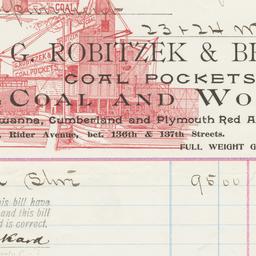 23 & 24
G. ROBITZEK & BR
G. ROBITZEK &
COAL POCKETS.
COAL POCKETS
COAL AND WO
wanna, Cumberland and Plymouth Red A
, Rider Avenue, bet. 136th & 137th Streets.
FULL WEIGHT G
95 00
his bill have
and this bill
d is correct.